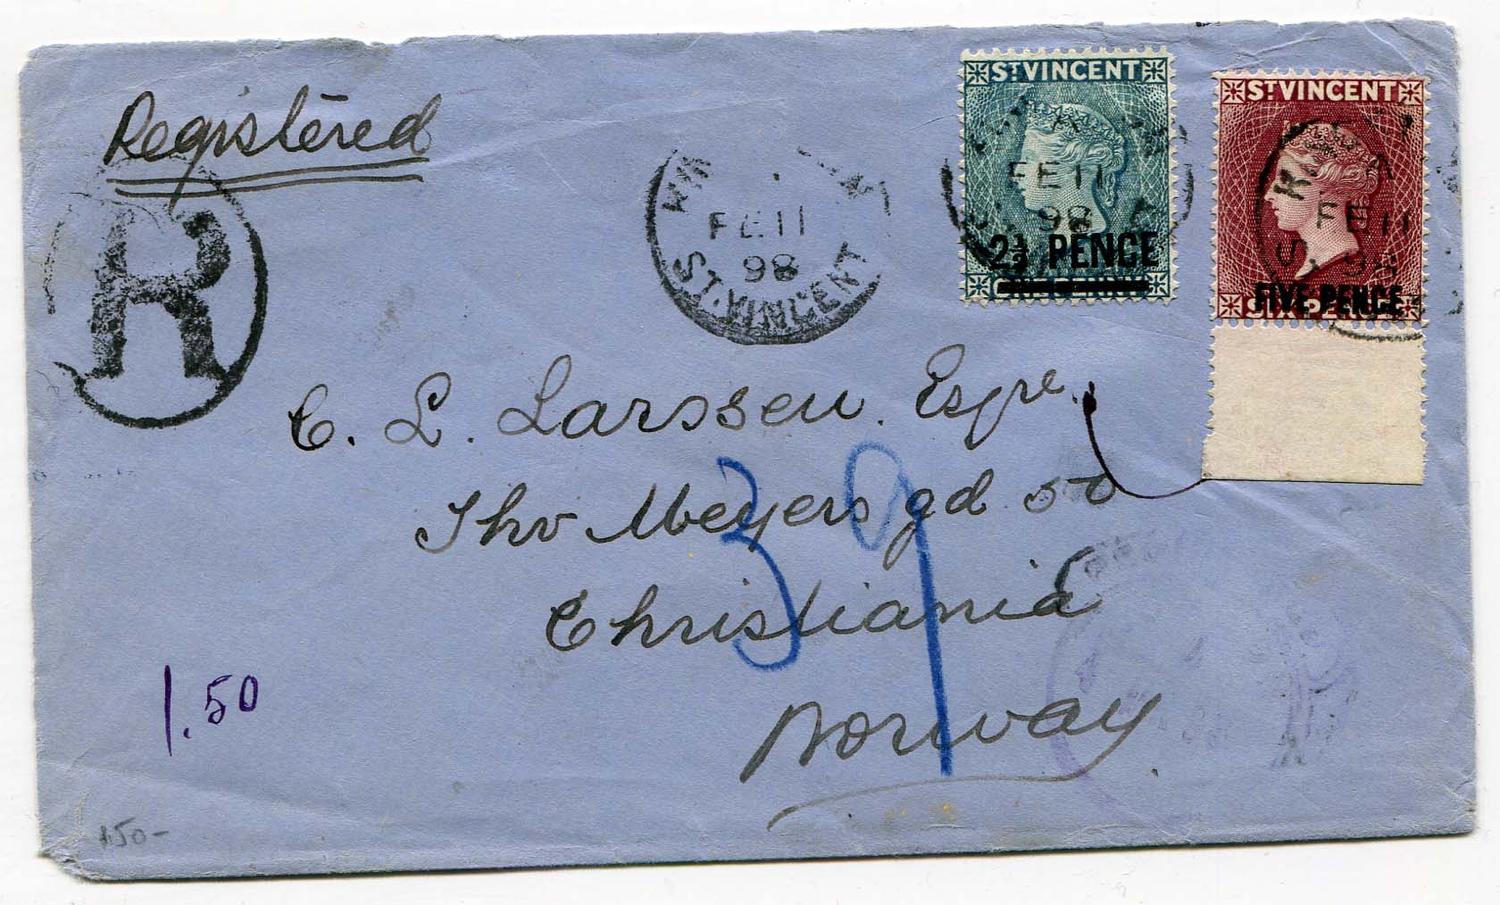 Registered
R
FE 11
98
ST. VINCENT
ST VINCENT
FE 11
98
2½ PENCE
ST VINCENT
FE 11
98
FIVE PENCE
SIX PENCE
C. L. Larssen. Esqre.
Thv Meyers gd 50
Christiania
Norway
39
1.50
150-